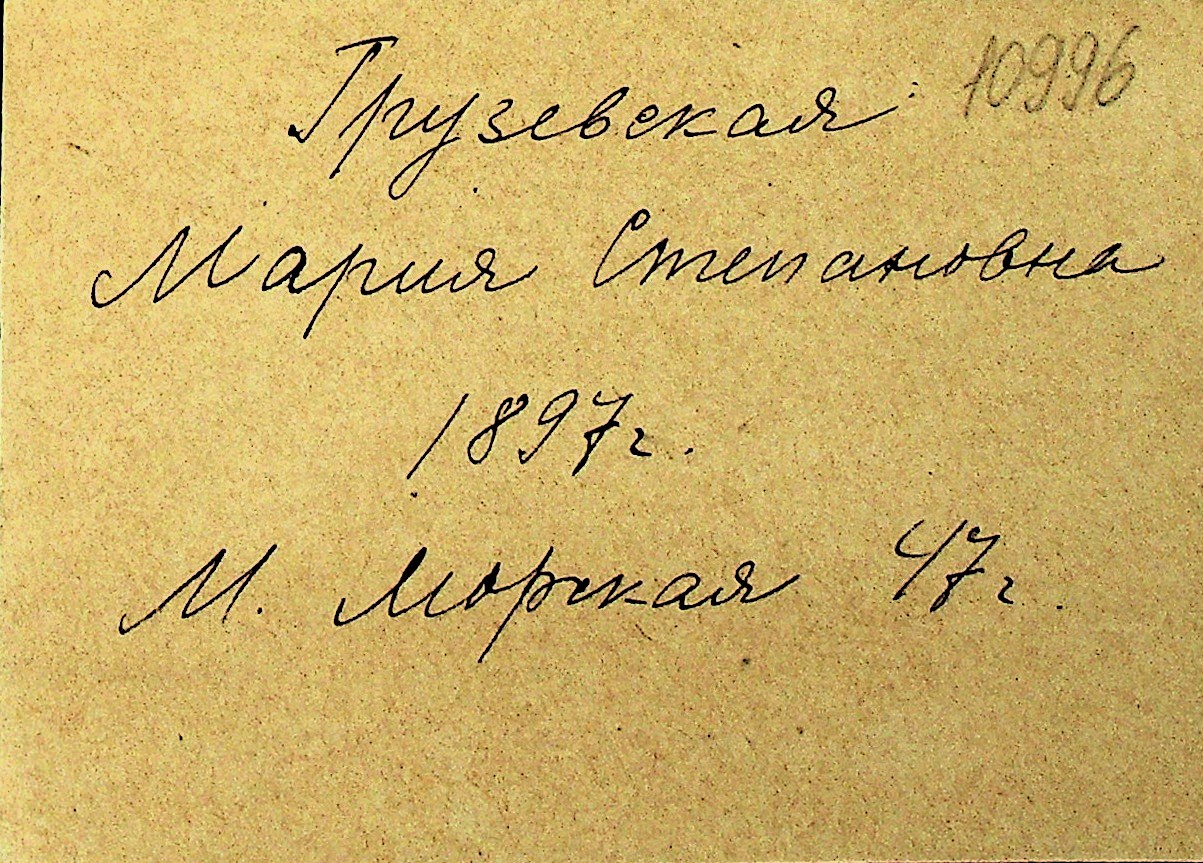 Грузевская 10996
Мария Степановна
1897г.
М. Морская 47г.